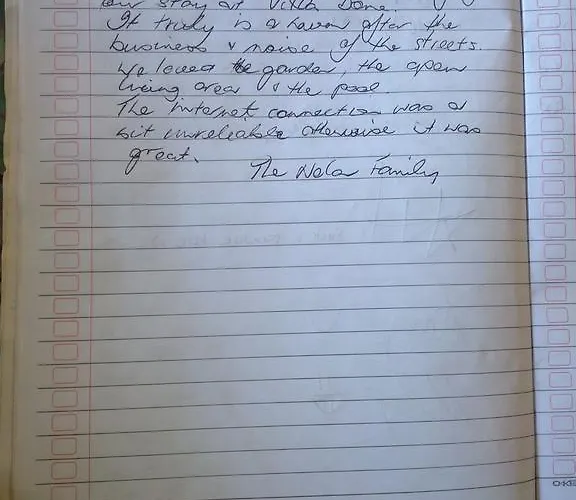 our stay at Villa
It truly is a haven after the
business & noise of the streets.
We loved the garden, the open
living area & the pool.
The internet connection was a
bit unreliable otherwise it was
great.
The Family